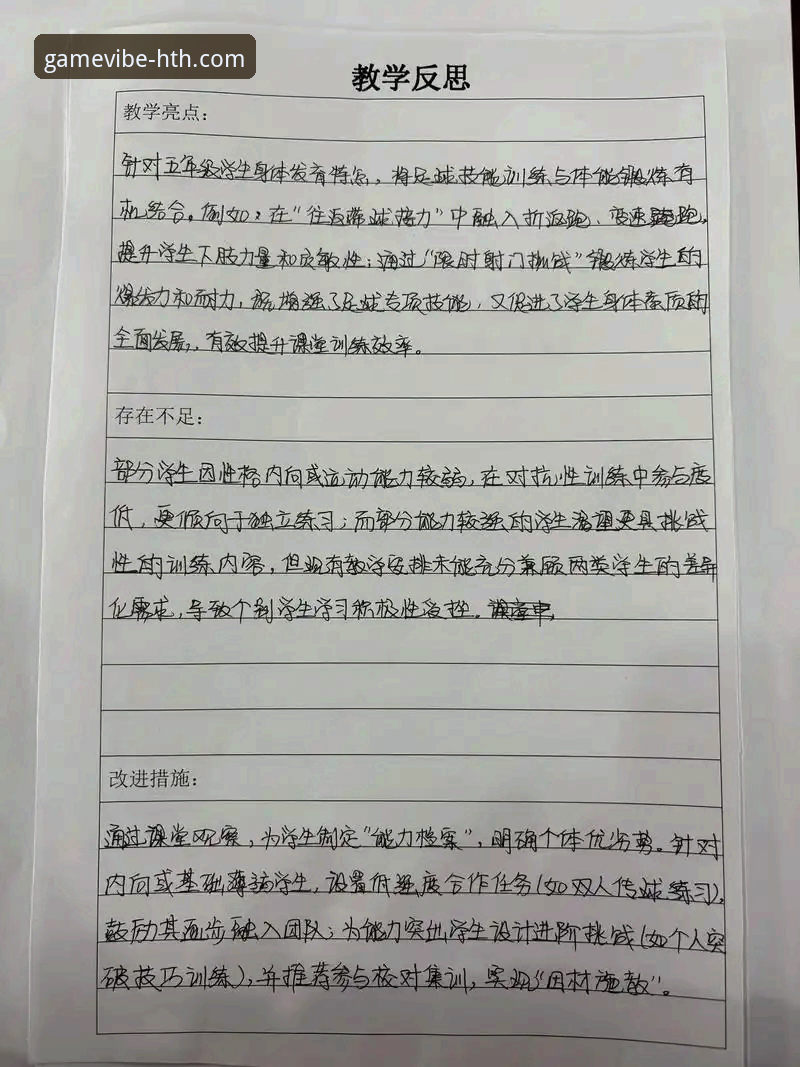 gamevibe-hth.com
教学反思
教学亮点：
针对五年级学生身体发育特点，将足球技能训练与体能锻炼有
机结合。例如：在“往返带球接力”中融入折返跑、变速跑，
提升学生下肢力量和灵敏性；通过“限时射门挑战”锻炼学生的
爆发力和耐力，既增强了足球专项技能，又促进了学生身体素质的
全面发展，有效提升课堂训练效率。
存在不足：
部分学生因性格内向或运动能力较弱，在对抗性训练中参与度
低，更倾向于独立练习；而部分能力较强的学生渴望更具挑战
性的训练内容，但现有教学安排未能充分兼顾两类学生的差异
化需求，导致个别学生学习积极性受挫。
改进措施：
通过课堂观察，为学生制定“能力档案”，明确个体优劣势。针对
内向或基础薄弱学生，设置低强度合作任务（如双人传球练习），
鼓励其逐步融入团队；为能力突出学生设计进阶挑战（如个人突
破技巧训练），并推荐参与校对集训，实现“因材施教”。